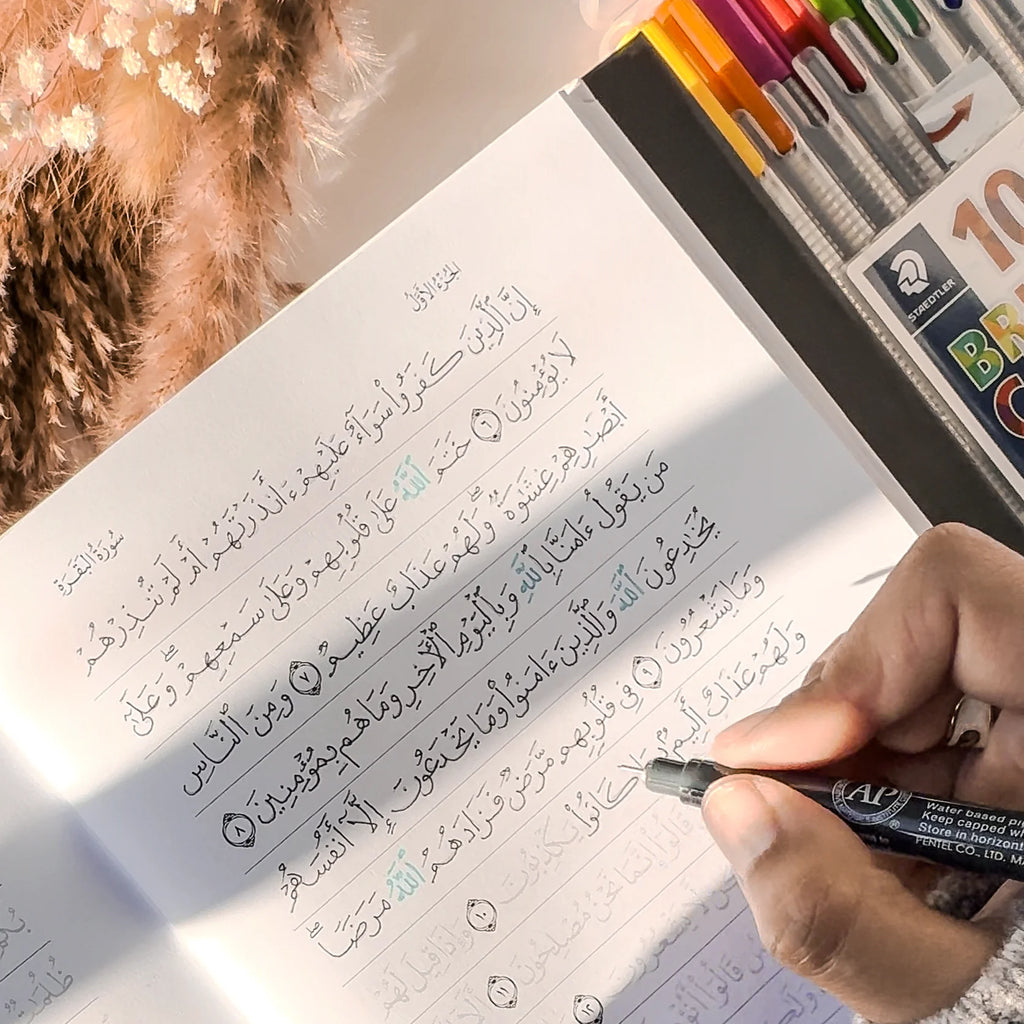 الجزء الأول
سورة البقرة
إِنَّ ٱلَّذِينَ كَفَرُوا۟ سَوَآءٌ عَلَيْهِمْ ءَأَنذَرْتَهُمْ أَمْ لَمْ تُنذِرْهُمْ
لَا يُؤْمِنُونَ ٦ خَتَمَ ٱللَّهُ عَلَىٰ قُلُوبِهِمْ وَعَلَىٰ سَمْعِهِمْ ۖ وَعَلَىٰٓ
أَبْصَٰرِهِمْ غِشَٰوَةٌ ۖ وَلَهُمْ عَذَابٌ عَظِيمٌ ٧ وَمِنَ ٱلنَّاسِ
مَن يَقُولُ ءَامَنَّا بِٱللَّهِ وَبِٱلْيَوْمِ ٱلْءَاخِرِ وَمَا هُم بِمُؤْمِنِينَ ٨
يُخَٰدِعُونَ ٱللَّهَ وَٱلَّذِينَ ءَامَنُوا۟ وَمَا يَخْدَعُونَ إِلَّآ أَنفُسَهُمْ
وَمَا يَشْعُرُونَ ٩ فِى قُلُوبِهِم مَّرَضٌ فَزَادَهُمُ ٱللَّهُ مَرَضًا ۖ
وَلَهُمْ عَذَابٌ أَلِيمٌۢ بِمَا كَانُوا۟ يَكْذِبُونَ ١٠ وَإِذَا قِيلَ لَهُمْ
قَالُوٓا۟ إِنَّمَا نَحْنُ مُصْلِحُونَ ١١ أَلَآ
لَّا يَشْعُرُونَ ١٢
قَالُوٓا۟
STAEDTLER
10
BR
AP
INSTITUTE
Water based pi
Keep capped wh
Store in horizont
PENTEL CO., LTD. MA